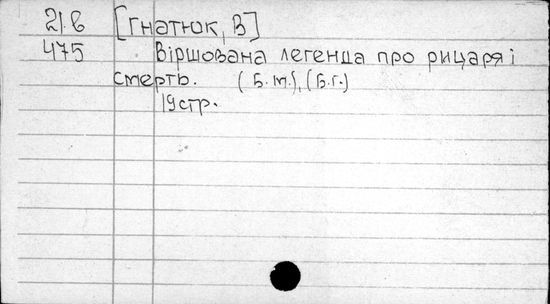 21.6 [Гнатюк, В]
475 Віршована легенда про рицаря і
смерть. (Б.т.), (Б.г.)
19стр.